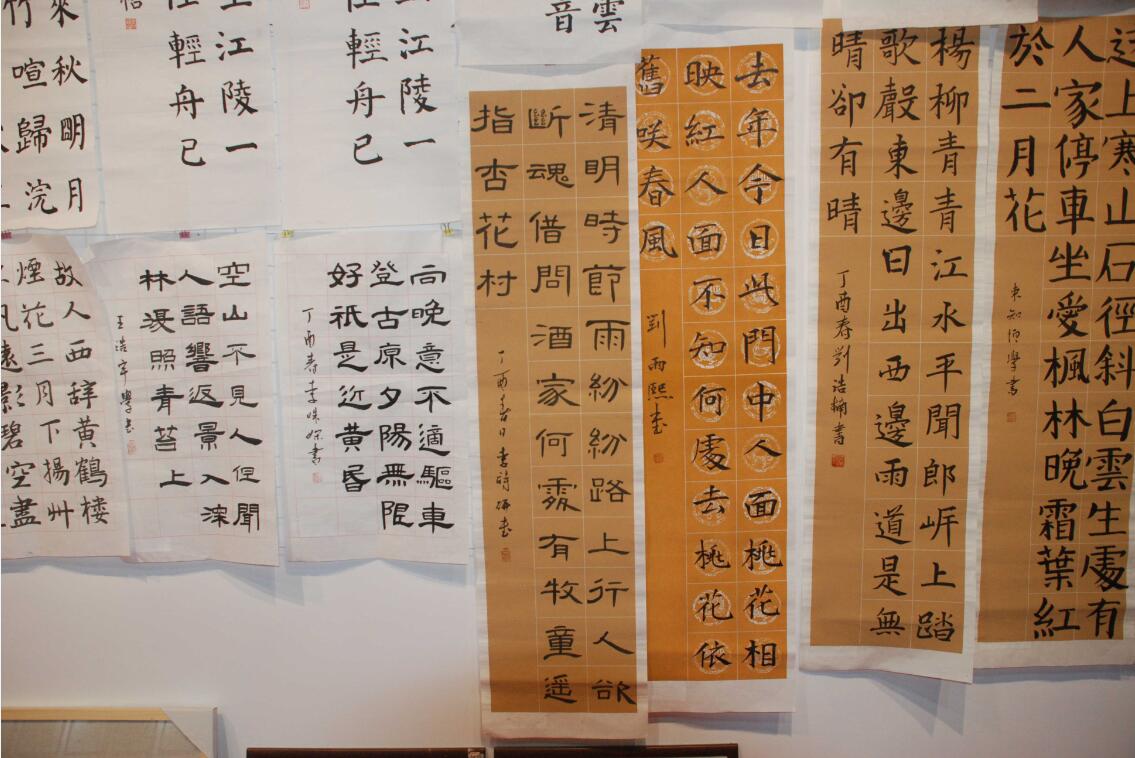 上寒山石徑斜白雲生處有
人家停車坐愛楓林晚霜葉紅
於二月花
楊柳青青江水平聞郎岸上踏
歌聲東邊日出西邊雨道是無
晴卻有晴
丁酉春劉浩楠書
去年今日此門中人面桃花相
映紅人面不知何處去桃花依
舊咲春風
劉雨熙書
雲
音
清明時節雨紛紛路上行人欲
斷魂借問酒家何處有牧童遥
指杏花村
丁酉春日李時妍書
江陵一
輕舟已
江陵一
輕舟已
來秋明月
竹喧歸浣
向晚意不適驅車
登古原夕陽無限
好祇是近黄昏
丁酉春李姝書
空山不見人但聞
人語響返景入深
林復照青苔上
王浩宇學書
故人西辭黄鶴楼
煙花三月下揚州
遠影碧空盡